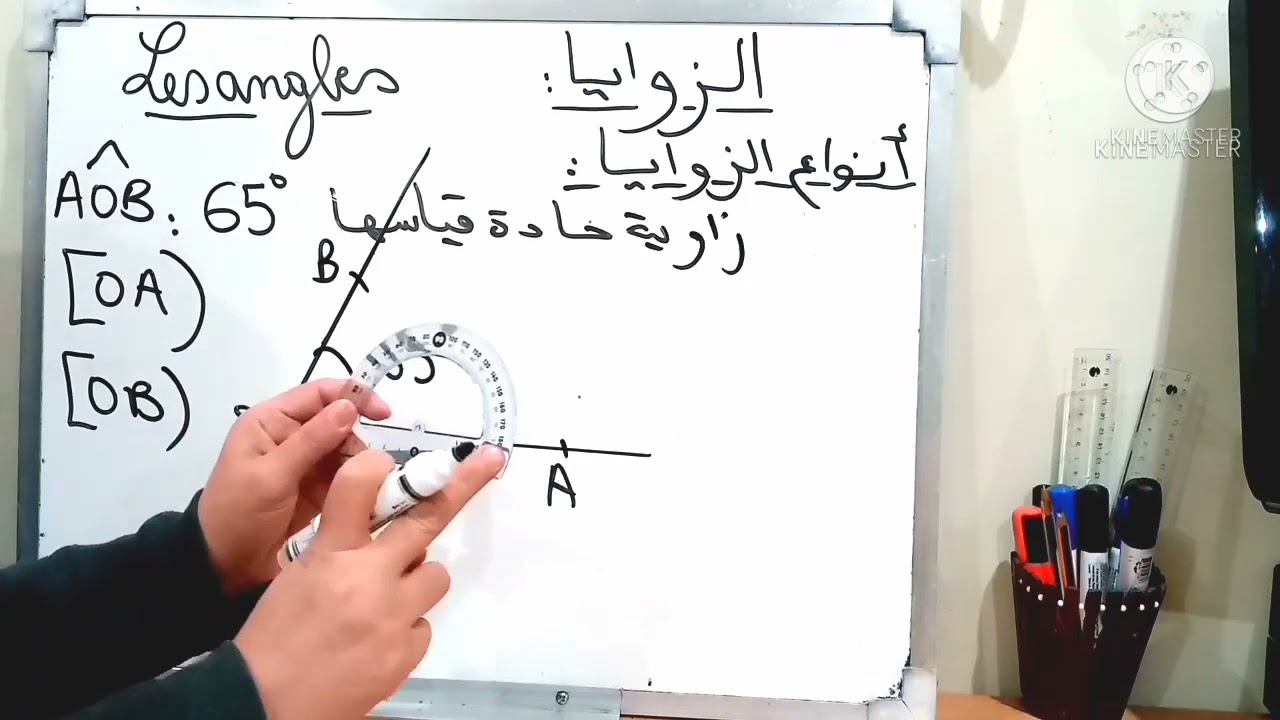 Les angles
الزوايا:
أنواع الزوايا:
AÔB: 65° زاوية حادة قياسها
[OA)
[OB)
B
A
KINEMASTER
KINEMASTER